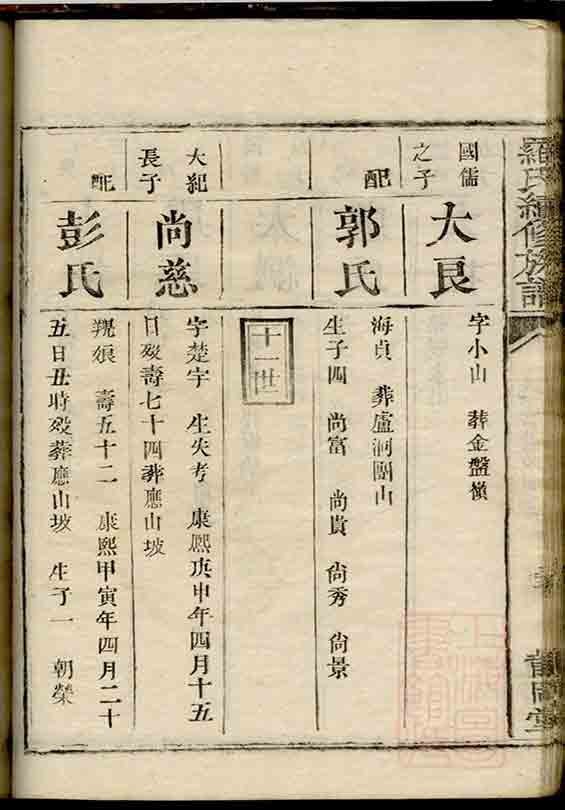 羅氏續修族譜
國儒
之子
大良
字小山 葬金盤嶺
配
郭氏
海貞 葬盧洞團山
生子四 尚富 尚貴 尚秀 尚景
十一世
大紀
長子
尚慈
字楚宇 生失考 康熙庚申年四月十五
日歿壽七十四葬應山坡
配
彭氏
親娘 壽五十二 康熙甲寅年四月二十
五日丑時歿葬應山坡 生子一 朝榮